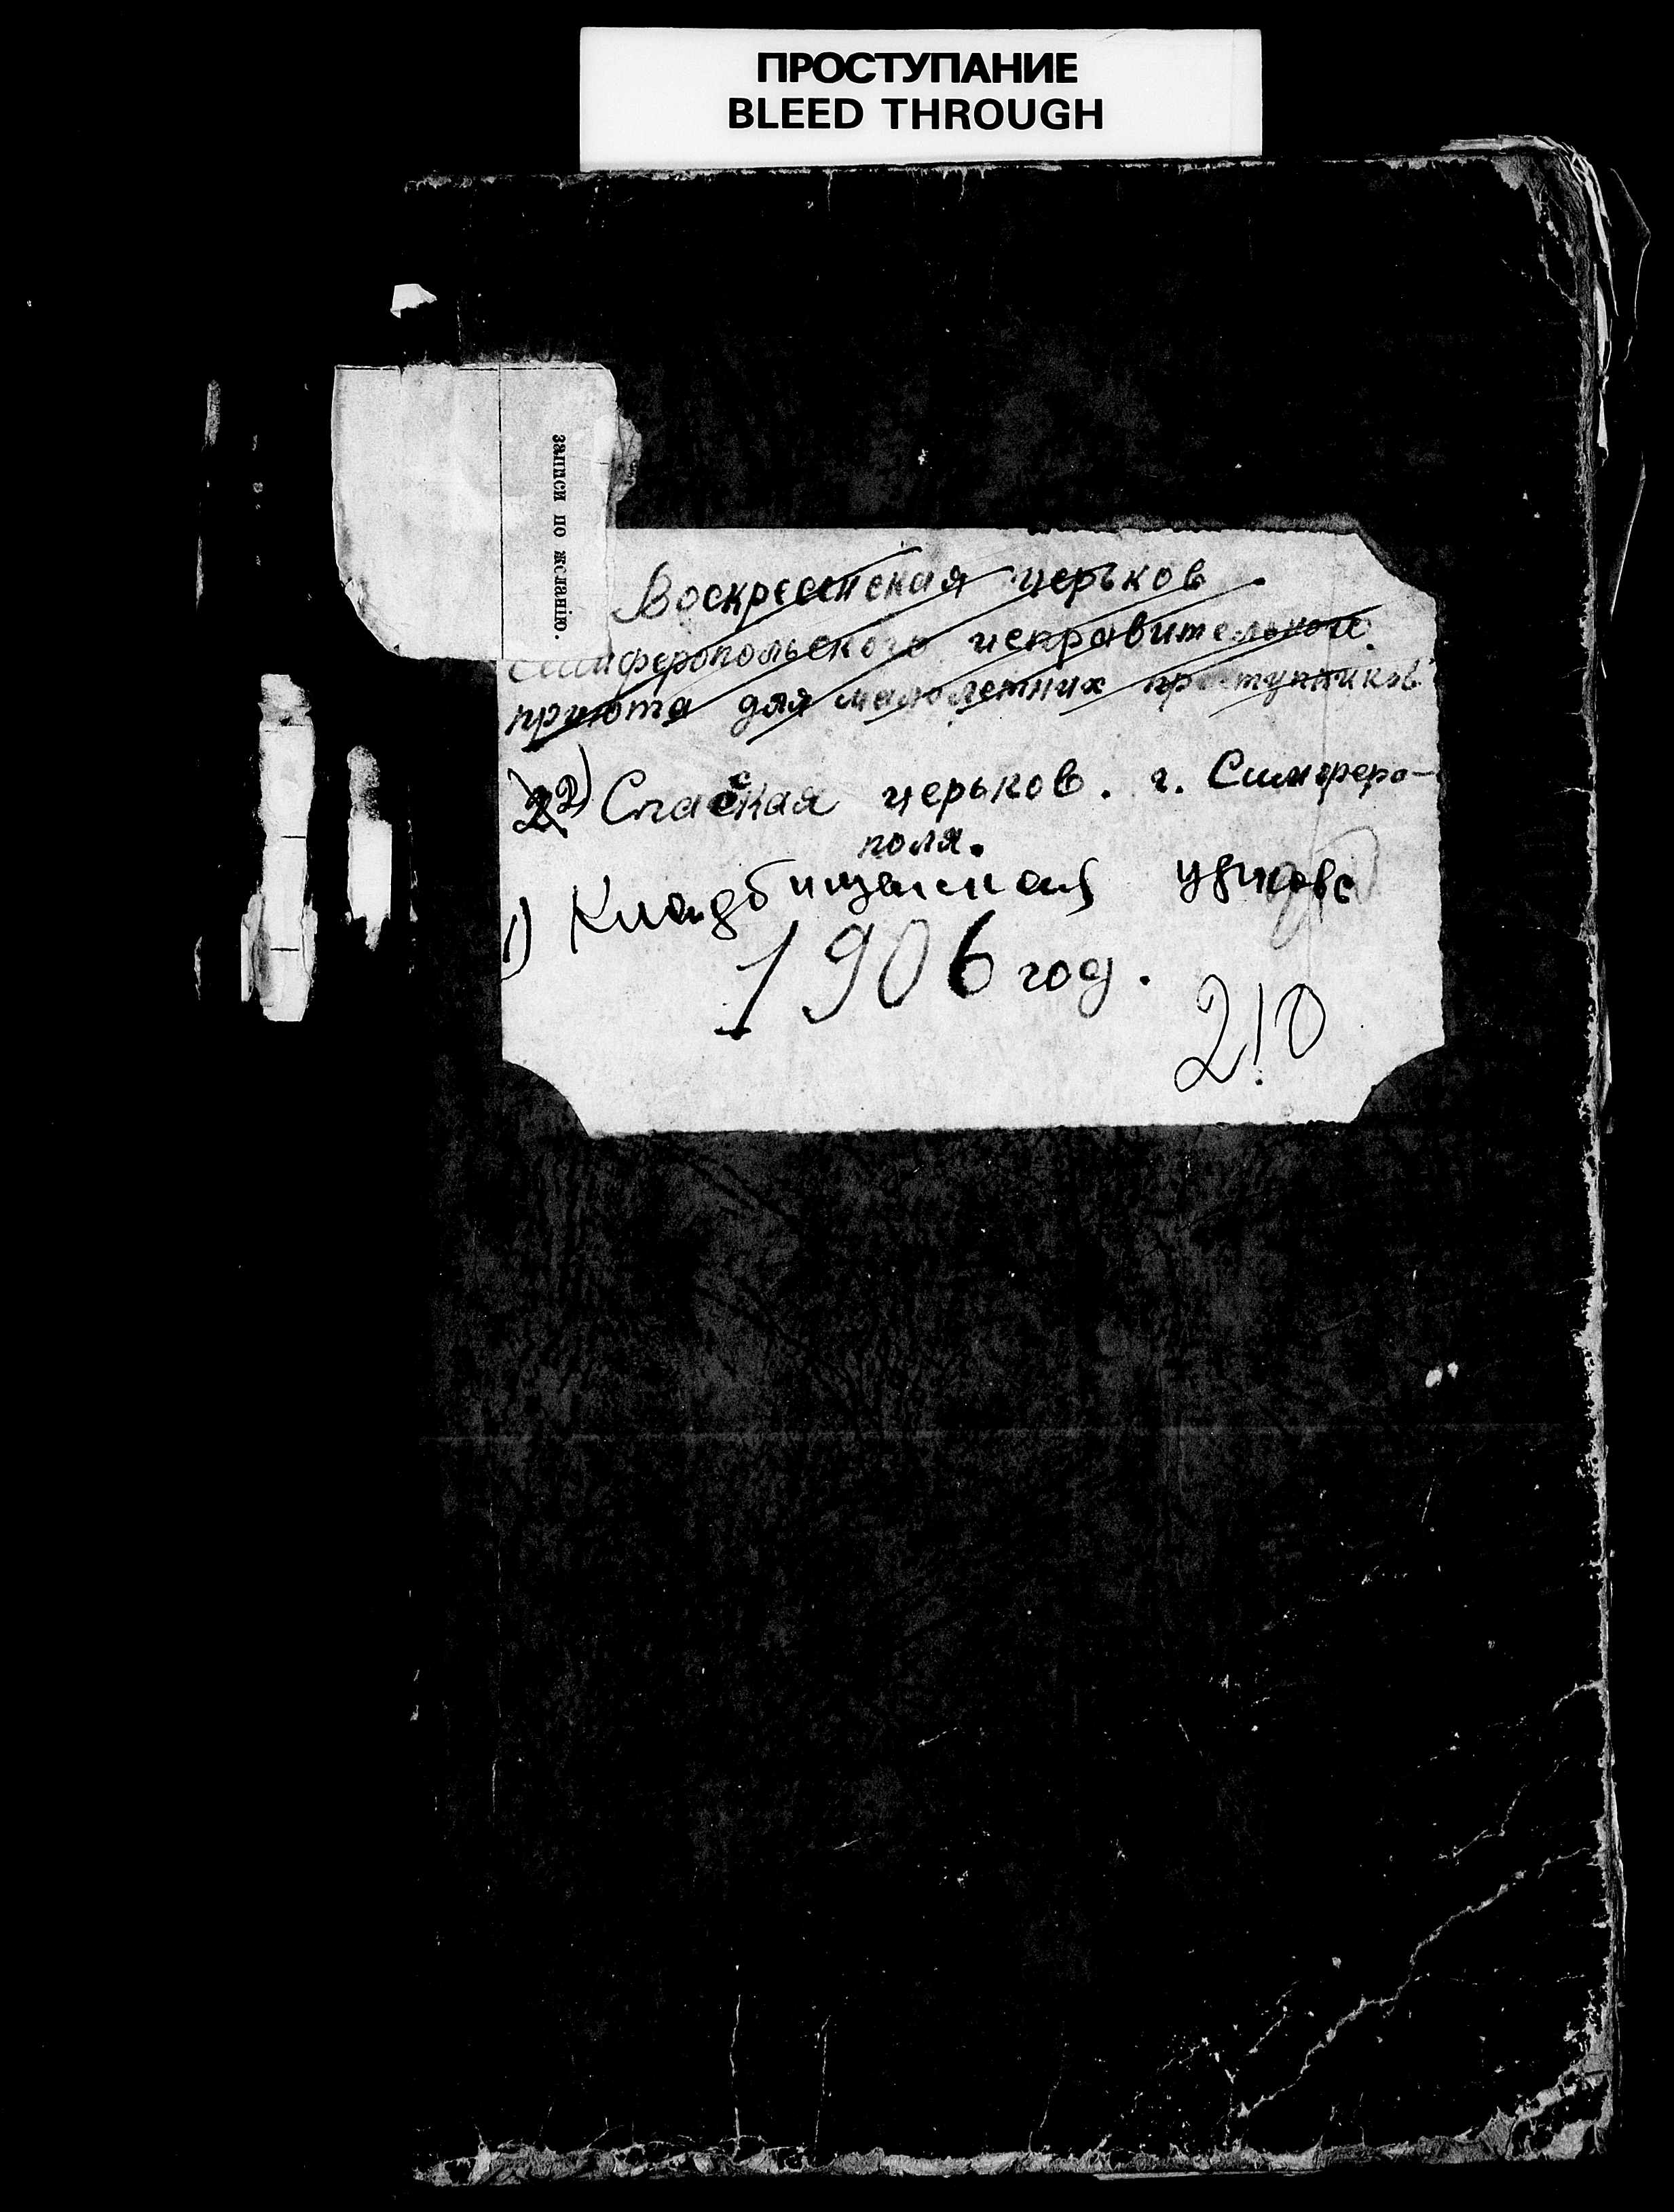 ПРОСТУПАНИЕ
BLEED THROUGH
записи по желанію.
Воскресенская церьков
Симферопольского исправительного
приюта для малолетних преступников
2) Спасская церьков. г. Симферо-
поля.
1) Кладбищенская церковь
1906 год.
210